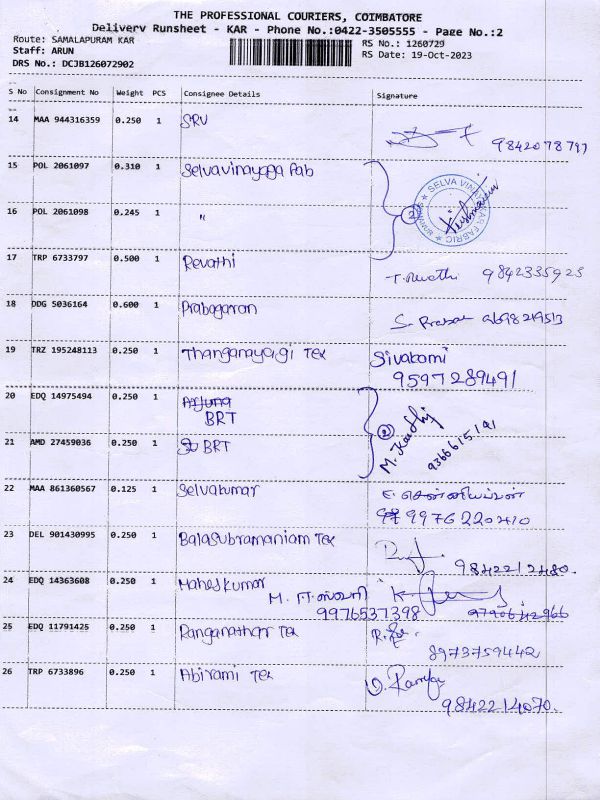 THE PROFESSIONAL COURIERS, COIMBATORE
Delivery Runsheet - KAR - Phone No.:0422-3505555 - Page No.:2
Route: SAMALAPURAM KAR
RS No.: 1260729
Staff: ARUN
RS Date: 19-Oct-2023
DRS No.: DCJB126072902
S No Consignment No Weight PCS Consignee Details Signature
14 MAA 944316359 0.250 1 SRV
9842078797
15 POL 2061097 0.310 1 Selvavinayaga Fab
SELVA VINAYAGAR FABRIC
16 POL 2061098 0.245 1 "
2
17 TRP 6733797 0.500 1 Revathi T. Revathi 9842335925
18 DDG 5036164 0.600 1 Prabagaran
S. Prabak 9698219513
19 TRZ 195248113 0.250 1 Thanganayagi Tex Sivakami
9597289491
20 EDQ 14975494 0.250 1 Arjuna
BRT
2
21 AMD 27459036 0.250 1 BRT
M. Karthi
9366615191
22 MAA 861360567 0.125 1 Selvakumar
9976220410
23 DEL 901430995 0.250 1 Balasubramaniam Tex
9842212480.
24 EDQ 14363608 0.250 1 Maheskumar
9976537398 9790642966
25 EDQ 11791425 0.250 1 Ranganathar Tex
8973759442
26 TRP 6733896 0.250 1 Abirami Tex
9842214070.